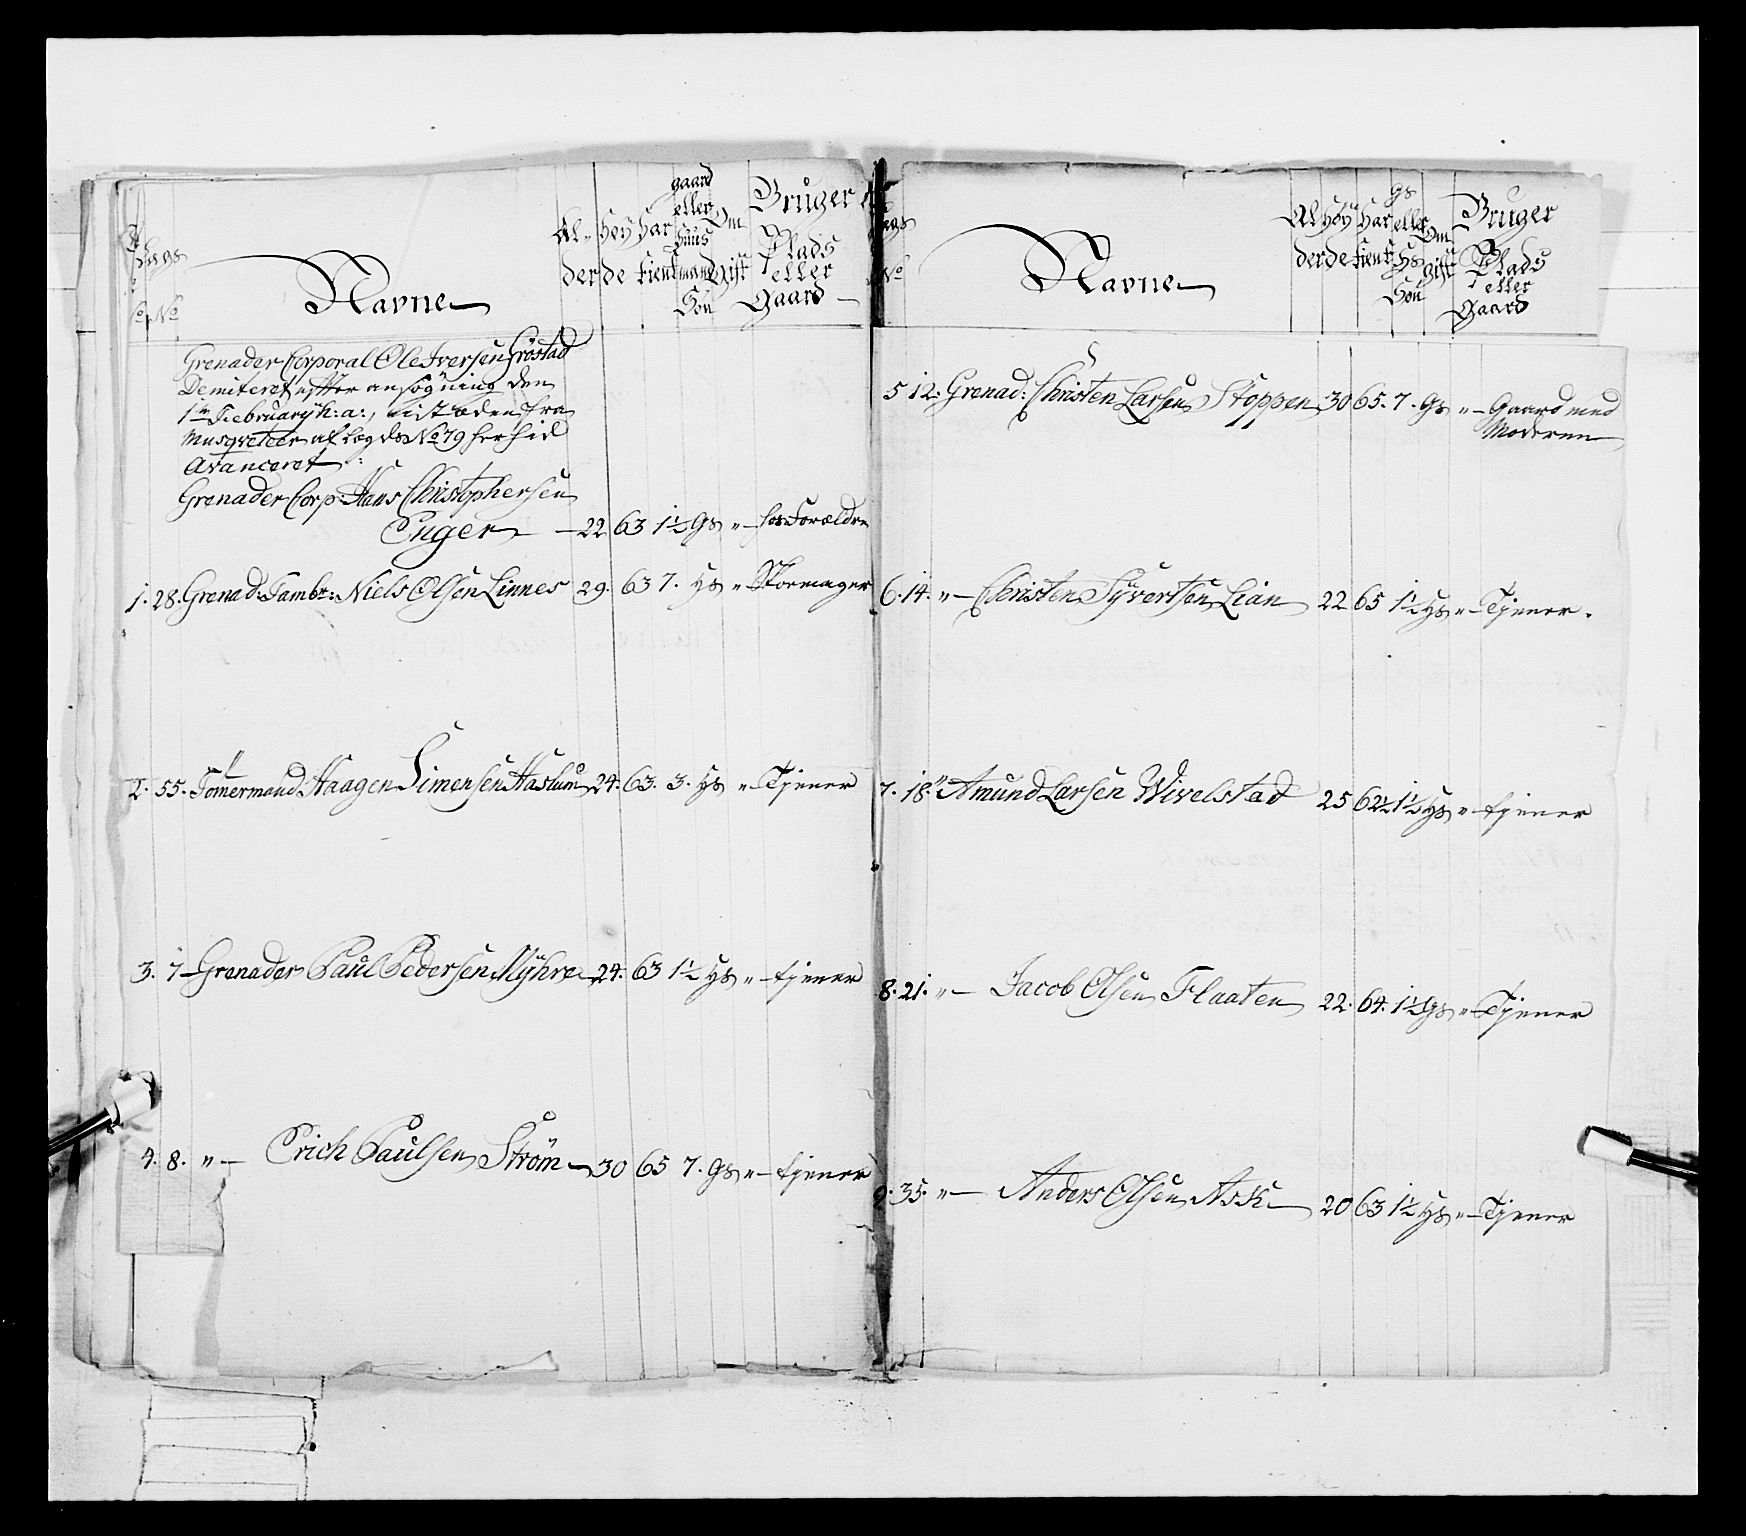 Lægs
No No
Navne
Al-
der
Høy
de
Har
tient
gaard
eller
Huus
mand
Søn
Om
Gift
Bruger
Plads
eller
Gaard
Grenader Corporal Ole Iversen Grøstad
Demiteret efter ansøgning den
1te Februarÿ h: a:, istæden fra
Musqveteer af Lægds No 79 herhid
Avanceret
Grenader Corp: Hans Christophersen
Enger 22 63 1½ Gs " hos Forældre
1. 28. Grenad: Tambr: Niels Olsen Linnes 29. 63 7. Hs " Skoemager
2. 55. Tømermand Haagen Simensen Haslum 24. 63. 3. Hs " Tjener
3. 7 Grenader Paul Pedersen Mÿhre 24. 63 1½ Hs " tjener
4. 8. " Erich Paulsen Strøm 30 65 7. Gs " tjener
Lægs
No
Navne
Al
der
Høy
de
Har
tient
Gs
eller
Hs
Søn
Om
Gift
Bruger
Plads
eller
Gaard
5 12. Grenad: Christen Larsen Stoppen 30 65. 7. Gs " Gaard med
Moderen
6. 14. " Christen Syvertsen Lian 22 65 1½ Hs " Tjener.
7. 18. " Amund Larsen Wivelstad 25 62½ 1½ Hs " tjener
8. 21. " Jacob Olsen Flaaten 22. 64. 1½ Gs " Tjener
9. 35. " Anders Olsen Ask 20 63 1½ Hs " Tjener